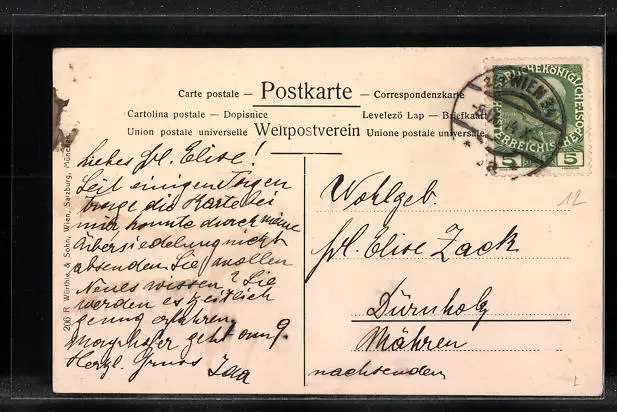 Carte postale — Postkarte — Correspondenzkarte
Cartolina postale — Dopisnice Levelező Lap — Briefkaart
Union postale universelle Weltpostverein Unione postale universale
WIEN
5 5
Liebes Frl. Elise!
Seit einigen Tagen
trage die Karte bei
mir, konnte durch meine
Übersiedelung nicht
absenden. Sie wollen
Neues wissen? Sie
werden es zeitlich
genug erfahren.
Mayrhofer geht am 9.
Herzl. Gruss
Wohlgeb.
Frl. Elise Zack
Dürnholz
Mähren
nachsenden
12
206 R. Würthle & Sohn, Wien, Salzburg, München